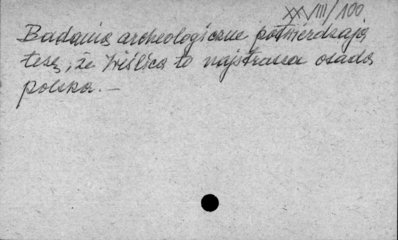 XXVIII/100
Badania archeologiczne potwierdzają
tezę, że Wiślica to najstarsza osada
polska. —